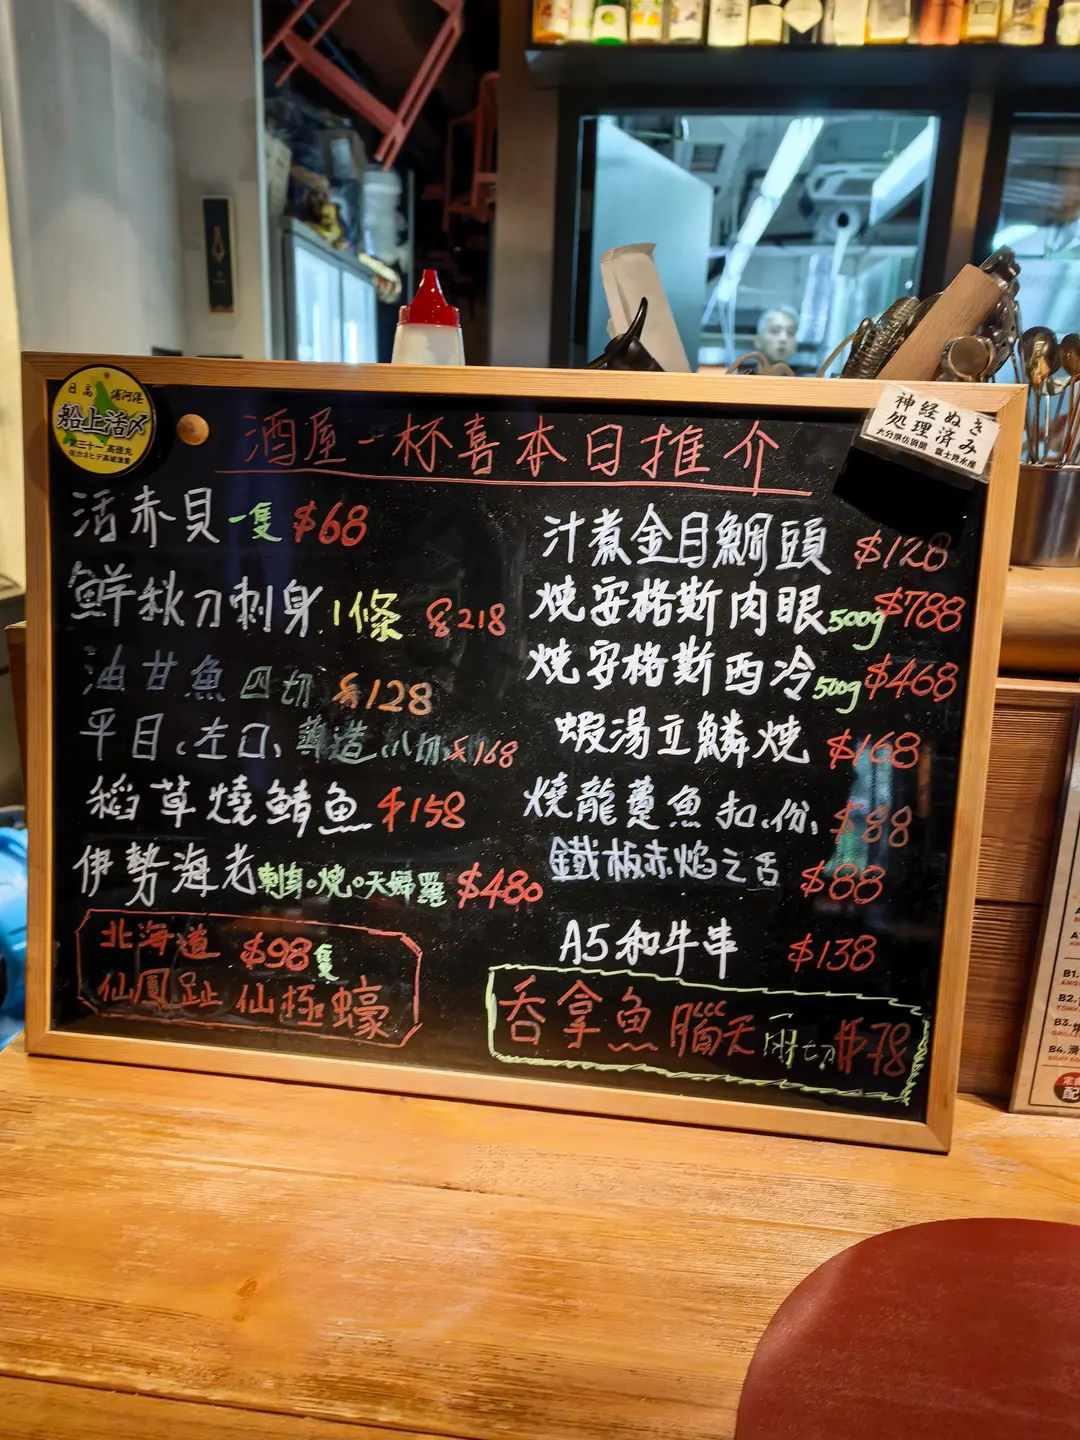 日高 浦河港
船上活〆
第三十一高徳丸
神経ぬき
処理済み
大分県佐賀関 富士見水産
酒屋一杯喜本日推介
活赤貝一隻 $68
鮮秋刀刺身 1條 $218
油甘魚 四切 $128
平目、左口、薄造、八切 $168
稻草燒鯖魚 $158
伊勢海老 刺身。燒。天婦羅 $480
北海道 $98隻
仙鳳趾仙極蠔
汁煮金目鯛頭 $128
燒安格斯肉眼 500g $788
燒安格斯西冷 500g $468
蝦湯立鱗燒 $168
燒龍躉魚扣、份、 $88
鐵板赤焰之舌 $88
A5和牛串 $138
吞拿魚腦天 兩切 $78
B1.
B2.
B3.
B4.